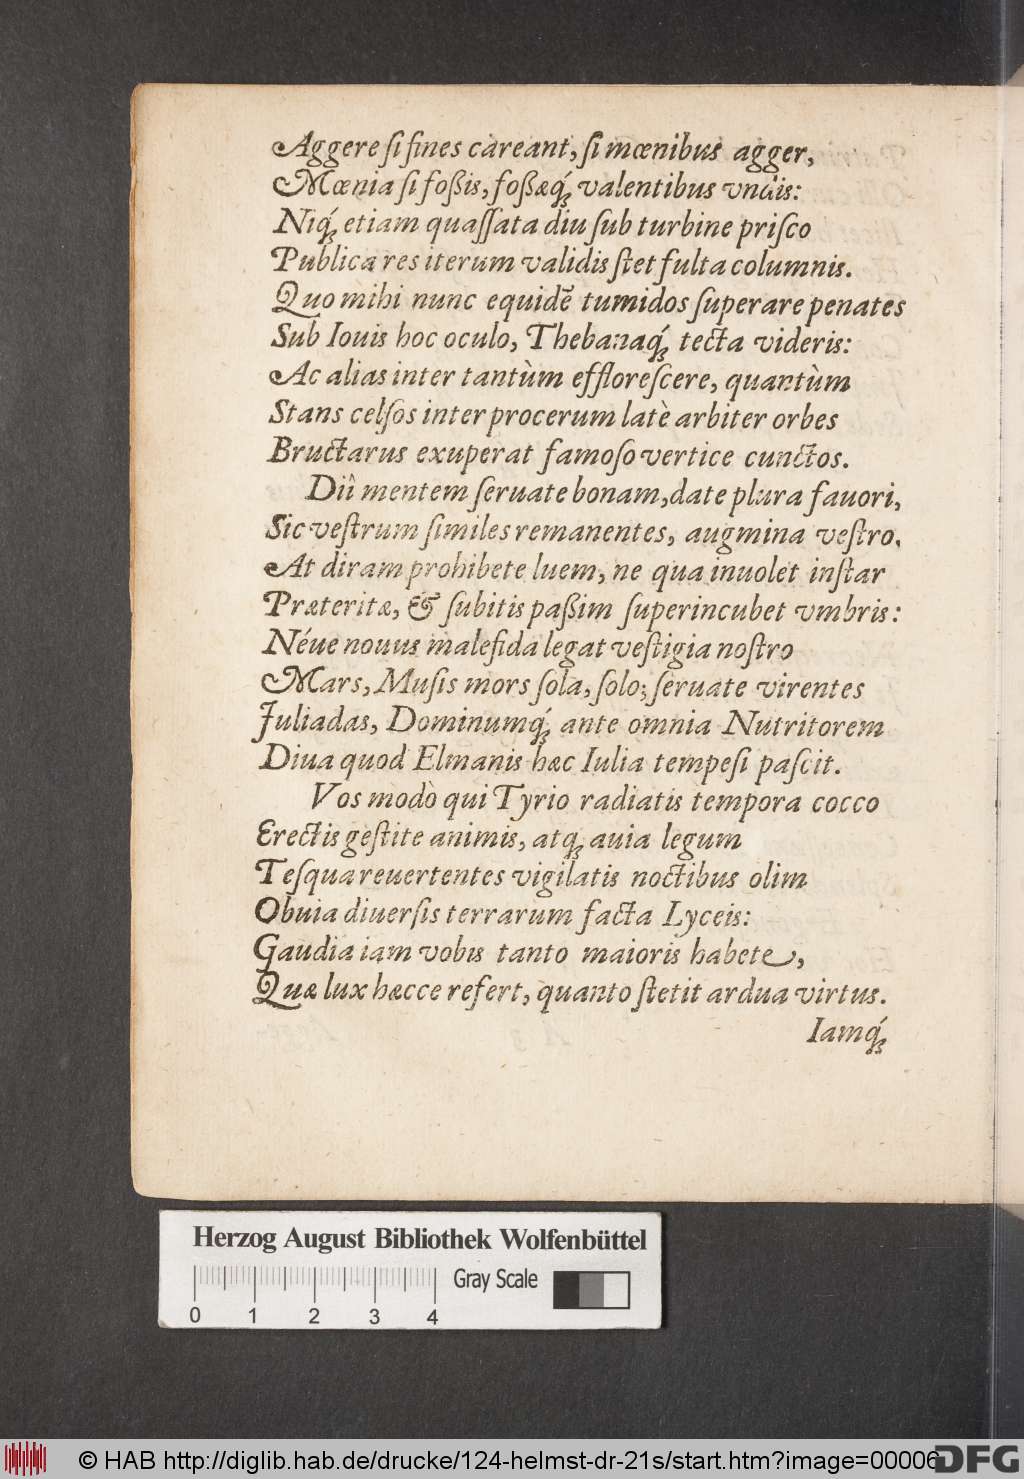 Aggere ſi fines careant, ſi mœnibus agger,
Mœnia ſi foßis, foßæq́; valentibus vndis:
Niq́; etiam quaſſata diu ſub turbine priſco
Publica res iterum validis ſtet fulta columnis.
Quo mihi nunc equidẽ tumidos ſuperare penates
Sub Iouis hoc oculo, Thebanaq́; tecta videris:
Ac alias inter tantùm effloreſcere, quantùm
Stans celſos inter procerum latè arbiter orbes
Bructarus exuperat famoſo vertice cunctos.
Dij mentem ſeruate bonam, date plura fauori,
Sic veſtrum ſimiles remanentes, augmina veſtro.
At diram prohibete luem, ne qua inuolet inſtar
Præteritæ, & ſubitis paßim ſuperincubet vmbris:
Néue nouus malefida legat veſtigia noſtro
Mars, Muſis mors ſola, ſolo; ſeruate virentes
Juliadas, Dominumq́; ante omnia Nutritorem
Diua quod Elmanis hæc Iulia tempeſi paſcit.
Vos modò qui Tyrio radiatis tempora cocco
Erectis geſtite animis, atq; auia legum
Teſqua reuertentes vigilatis noctibus olim
Obuia diuerſis terrarum facta Lyceis:
Gaudia iam vobis tanto maioris habete,
Quæ lux hæcce refert, quanto ſtetit ardua virtus.
Iamq́;
Herzog August Bibliothek Wolfenbüttel
Gray Scale
0 1 2 3 4
© HAB http://diglib.hab.de/drucke/124-helmst-dr-21s/start.htm?image=00006
DFG